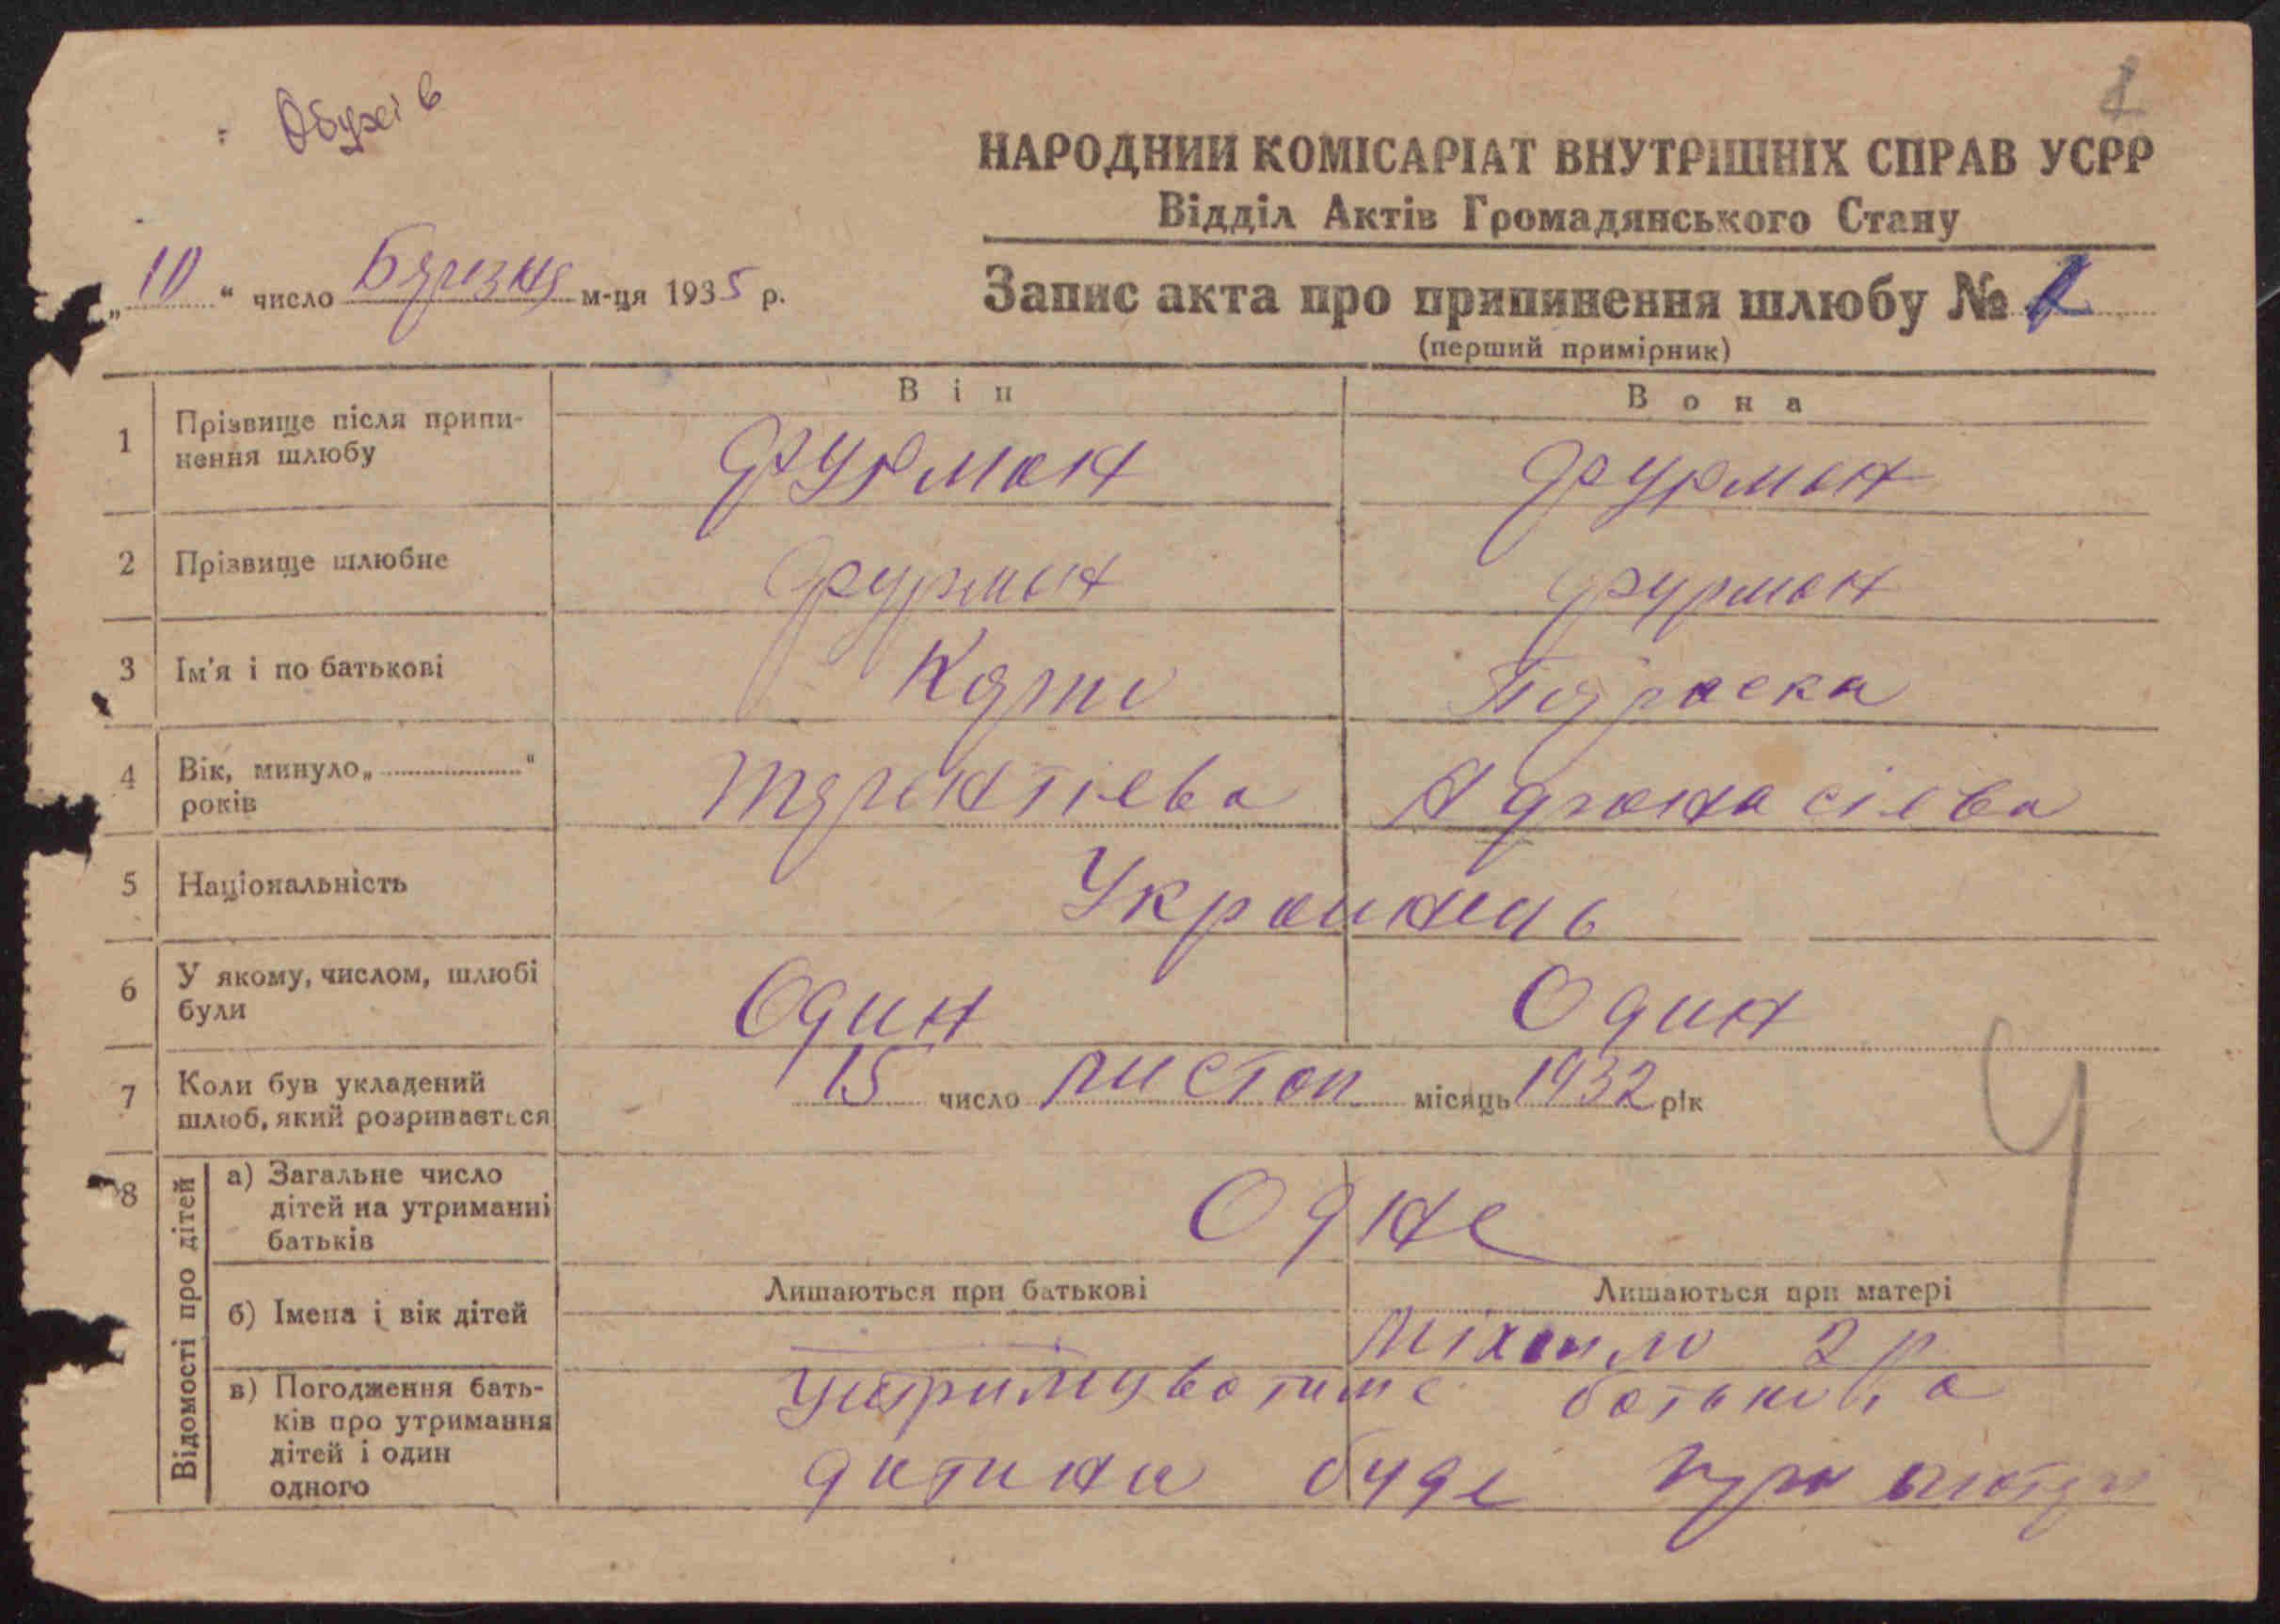 Обухів
НАРОДНИЙ КОМІСАРІАТ ВНУТРІШНІХ СПРАВ УСРР
Відділ Актів Громадянського Стану
„10“ число Бярезня м-ця 1935 р.
Запис акта про припинення шлюбу №
(перший примірник)
Він Вона
1 Прізвище після припи-
нення шлюбу Фурман Фурман
2 Прізвище шлюбне Фурман Фурман
3 Ім'я і по батькові
4 Вік, минуло „ “
років
5 Національність Украинець
6 У якому, числом, шлюбі
були Один Один
7 Коли був укладений
шлюб, який розривається 15 число листоп місяць 1932 рік
8 Відомості про дітей
а) Загальне число
дітей на утриманні
батьків Одне
Лишаються при батькові Лишаються при матері
б) Імена і вік дітей Міхайло 2 р
в) Погодження бать-
ків про утримання
дітей і один
одного
а
дитина буде при
Ч